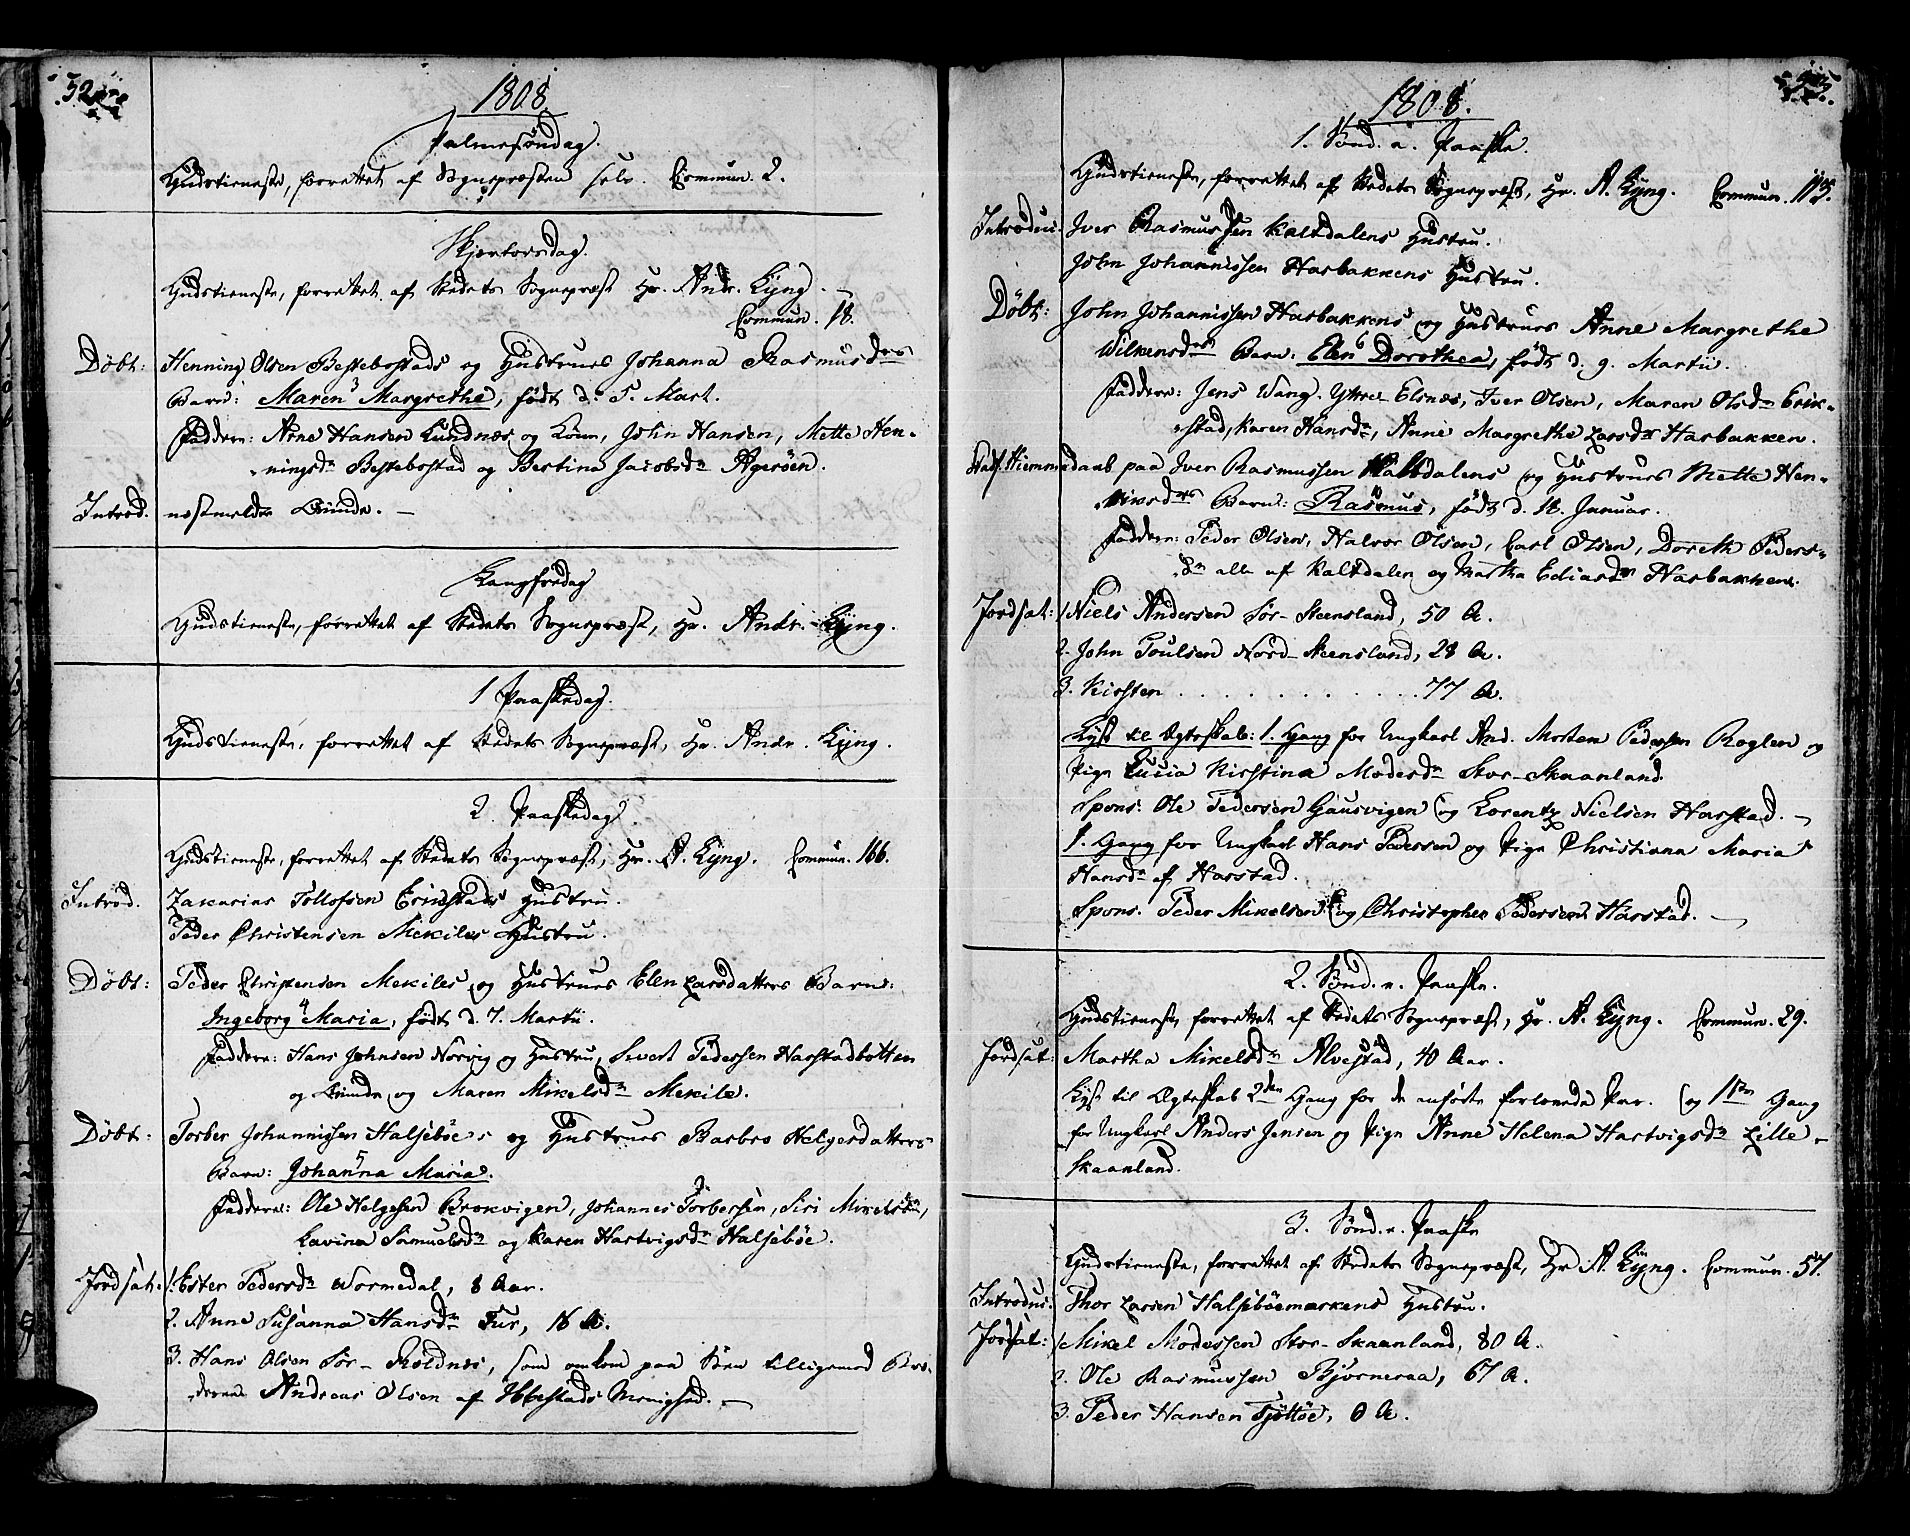 1808
Palmesøndag.
Gudstieneste, forrettet af Sognepræsten selv. Commun. 2.
Skjærtorsdag.
Gudstieneste, forrettet af Stedets Sognepræst Hr. Andr. Kyng.
Commun. 18.
Døbt: Henning Olsen Bestebostads og Hustrues Johanna Rasmusdrs
Barn: Maren 3 Margrethe, født d. 5. Mart.
Faddere: Arne Hansen Lundnæs og Kone, John Hansen, Mette Hen-
ningsdr Bestebostad og Bertina Jacobsdr Ageröen.
Introd. næstmeldte Qvinde. —
Langfredag
Gudstieneste, forrettet af Stedets Sognepræst, Hr. Andr. Kyng.
1 Paaskedag.
Gudstieneste, forrettet af Stedets Sognepræst, Hr. Andr. Kyng.
2. Paaskedag.
Gudstieneste, forrettet af Stedets Sognepræst, Hr. A. Kyng. Commun. 166.
Introd. Zakarias Tollofsen Erikstads Hustru.
Peder Christensen Mekiles Hustru.
Døbt: Peder Christensen Mekiles og Hustrues Elen Larsdatters Barn:
Ingeborg 4 Maria, født d. 7. Martii.
Faddere: Hans Johnsen Norvig og Hustru, Sivert Pedersen Harstadbotten
og Qvinde og Maren Mikelsdr Mekile.
Døbt: Torber Johannissen Halsebøe's og Hustrues Barbro Helgesdatters
Barn: Johanna 5 Maria.
Faddere: Ole Helgesen Brokvigen, Johannes Torbersen, Siri Mikelsdr,
Lavina Samuelsdr og Karen Hartvigsdr Halsebøe.
Jordsat: 1. Ester Pedersdr Wormedal, 8 Aar.
2. Anne Susanna Hansdr Fur, 16 A.
3. Hans Olsen Sør-Roldnes, som omkom paa Søen tilligemed Bro-
deren Andreas Olsen af Ibbestads Menighed. —
1808.
1. Sønd. e. Paaske.
Gudstieneste, forrettet af Stedets Sognepræst, Hr. A. Kyng. Commun. 115.
Introdus. Iver Rasmussen Kaltdalens Hustru.
John Johannissen Harbakkens Hustru.
Døbt: John Johannissen Harbakkens og Hustrues Anne Margrethe
Wilkensdrs Barn: Elen 6 Dorothea, født d. 9. Martii.
Faddere: Jens Wang Yttre Elsnæs, Iver Olsen, Maren Olsdr Erik-
stad, Karen Hansdr, Anne Margrethe Larsdr Harbakken.
Stadf. Hiemmedaab paa Iver Rasmussen Kaltdalens og Hustrues Mette Hen-
riksdrs Barn: Rasmus, født d. 14. Januar.
Faddere: Peder Olsen, Halvor Olsen, Carl Olsen, Doreth Peders-
dr alle af Kaltdalen og Martha Ediasdr Harbakken.
Jordsat: 1. Niels Andersen Sør-Steensland, 50 A.
2. John Poulsen Nord-Steensland, 28 A.
3. Kirsten . . . . . . . . . . . 77 A.
Lyst til Ægteskab: 1. Gang for Ungkarl And. Morten Pedersen Roglen og
Pige Lucia Kirstina Modesdr Stor-Skaanland.
Spons: Ole Pedersen Gausvigen og Lorentz Nielsen Harstad. —
1. Gang for Ungkarl Hans Pedersen og Pige Christiana Maria
Hansdr af Harstad.
Spons. Peder Mikelsen og Christopher Pedersen Harstad. —
2. Sønd. e. Paaske.
Gudstieneste, forrettet af Stedets Sognepræst, Hr. A. Kyng. Commun. 29.
Jordsat: Martha Mikelsdr Alvestad, 40 Aar.
Lyst til Ægteskab 2den Gang for de anførte forlovede Par. og 1ste Gang
for Ungkarl Anders Jensen og Pige Anne Helena Hartvigsdr Lille-
Skaanland.
3. Sønd. e. Paaske
Gudstieneste, forrettet af Stedets Sognepræst, Hr A. Kyng. Commun. 57.
Introdus. Thor Larsen Halsebøemarkens Hustru.
Jordsat: 1. Mikel Modessen Stor-Skaanland, 80 A.
2. Ole Rasmussen Bjørneraa, 67 A.
3. Peder Hansen Tjøttøe, 0 A.